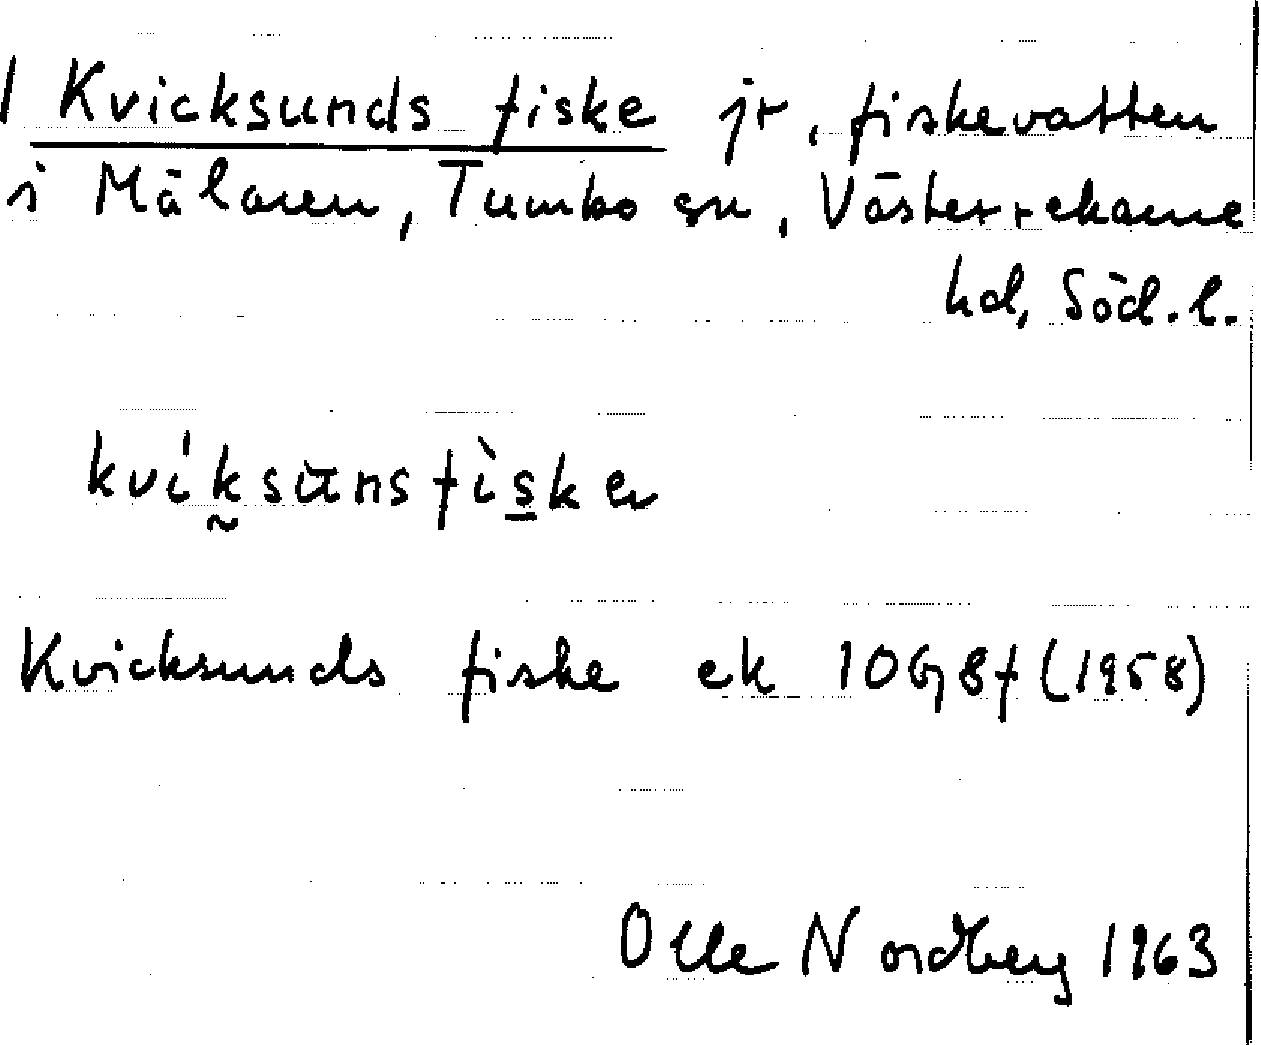 Kvicksunds fiske jr, fiskevatten
i Mälaren, Tumbo sn, Västerrekarne
hd, Söd.l.
kviksunsfiske
Kvicksunds fiske ek 10G8f (1958)
Olle Nordberg 1963